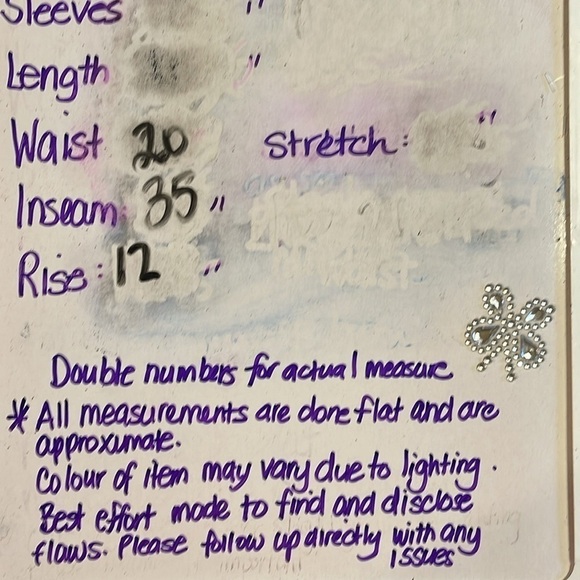 Sleeves "
Length "
Waist 20 Stretch: "
Inseam: 35 "
Rise: 12 "
Double numbers for actual measure
* All measurements are done flat and are
approximate.
Colour of item may vary due to lighting.
Best effort made to find and disclose
flaws. Please follow up directly with any
issues